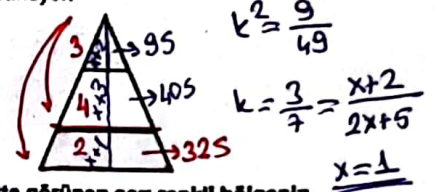 3 x+2 →9S
4 x+3 →40S
2 x+1 →32S
k² = 9/49
k = 3/7 = x+2/2x+5
x=1